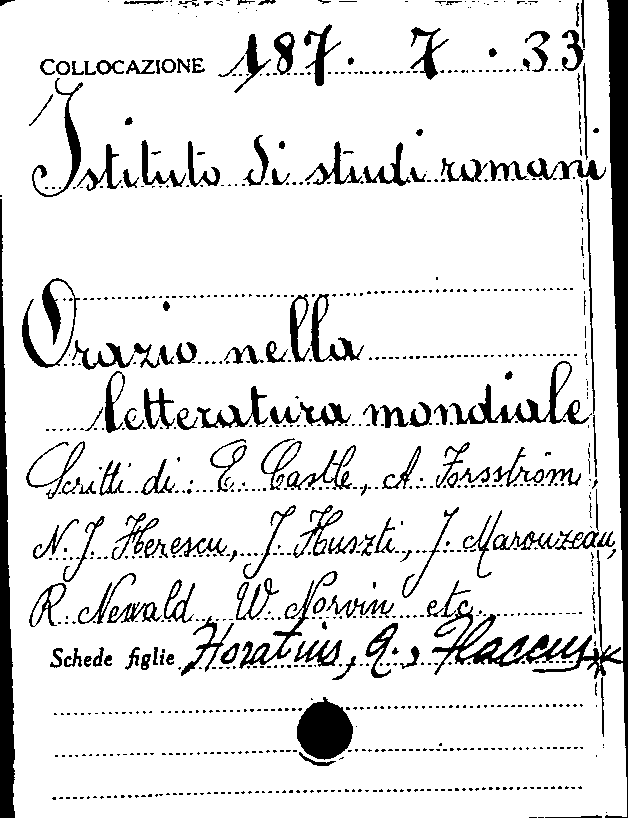 COLLOCAZIONE 187. 7. 33
Istituto di studi romani
Orazio nella
letteratura mondiale
Scritti di: E. Castle, A. Forsström,
N. J. Herescu, J. Huszti, J. Marouzeau,
R. Newald, W. Norvin etc.
Schede figlie Horatius, Q., Flaccus *